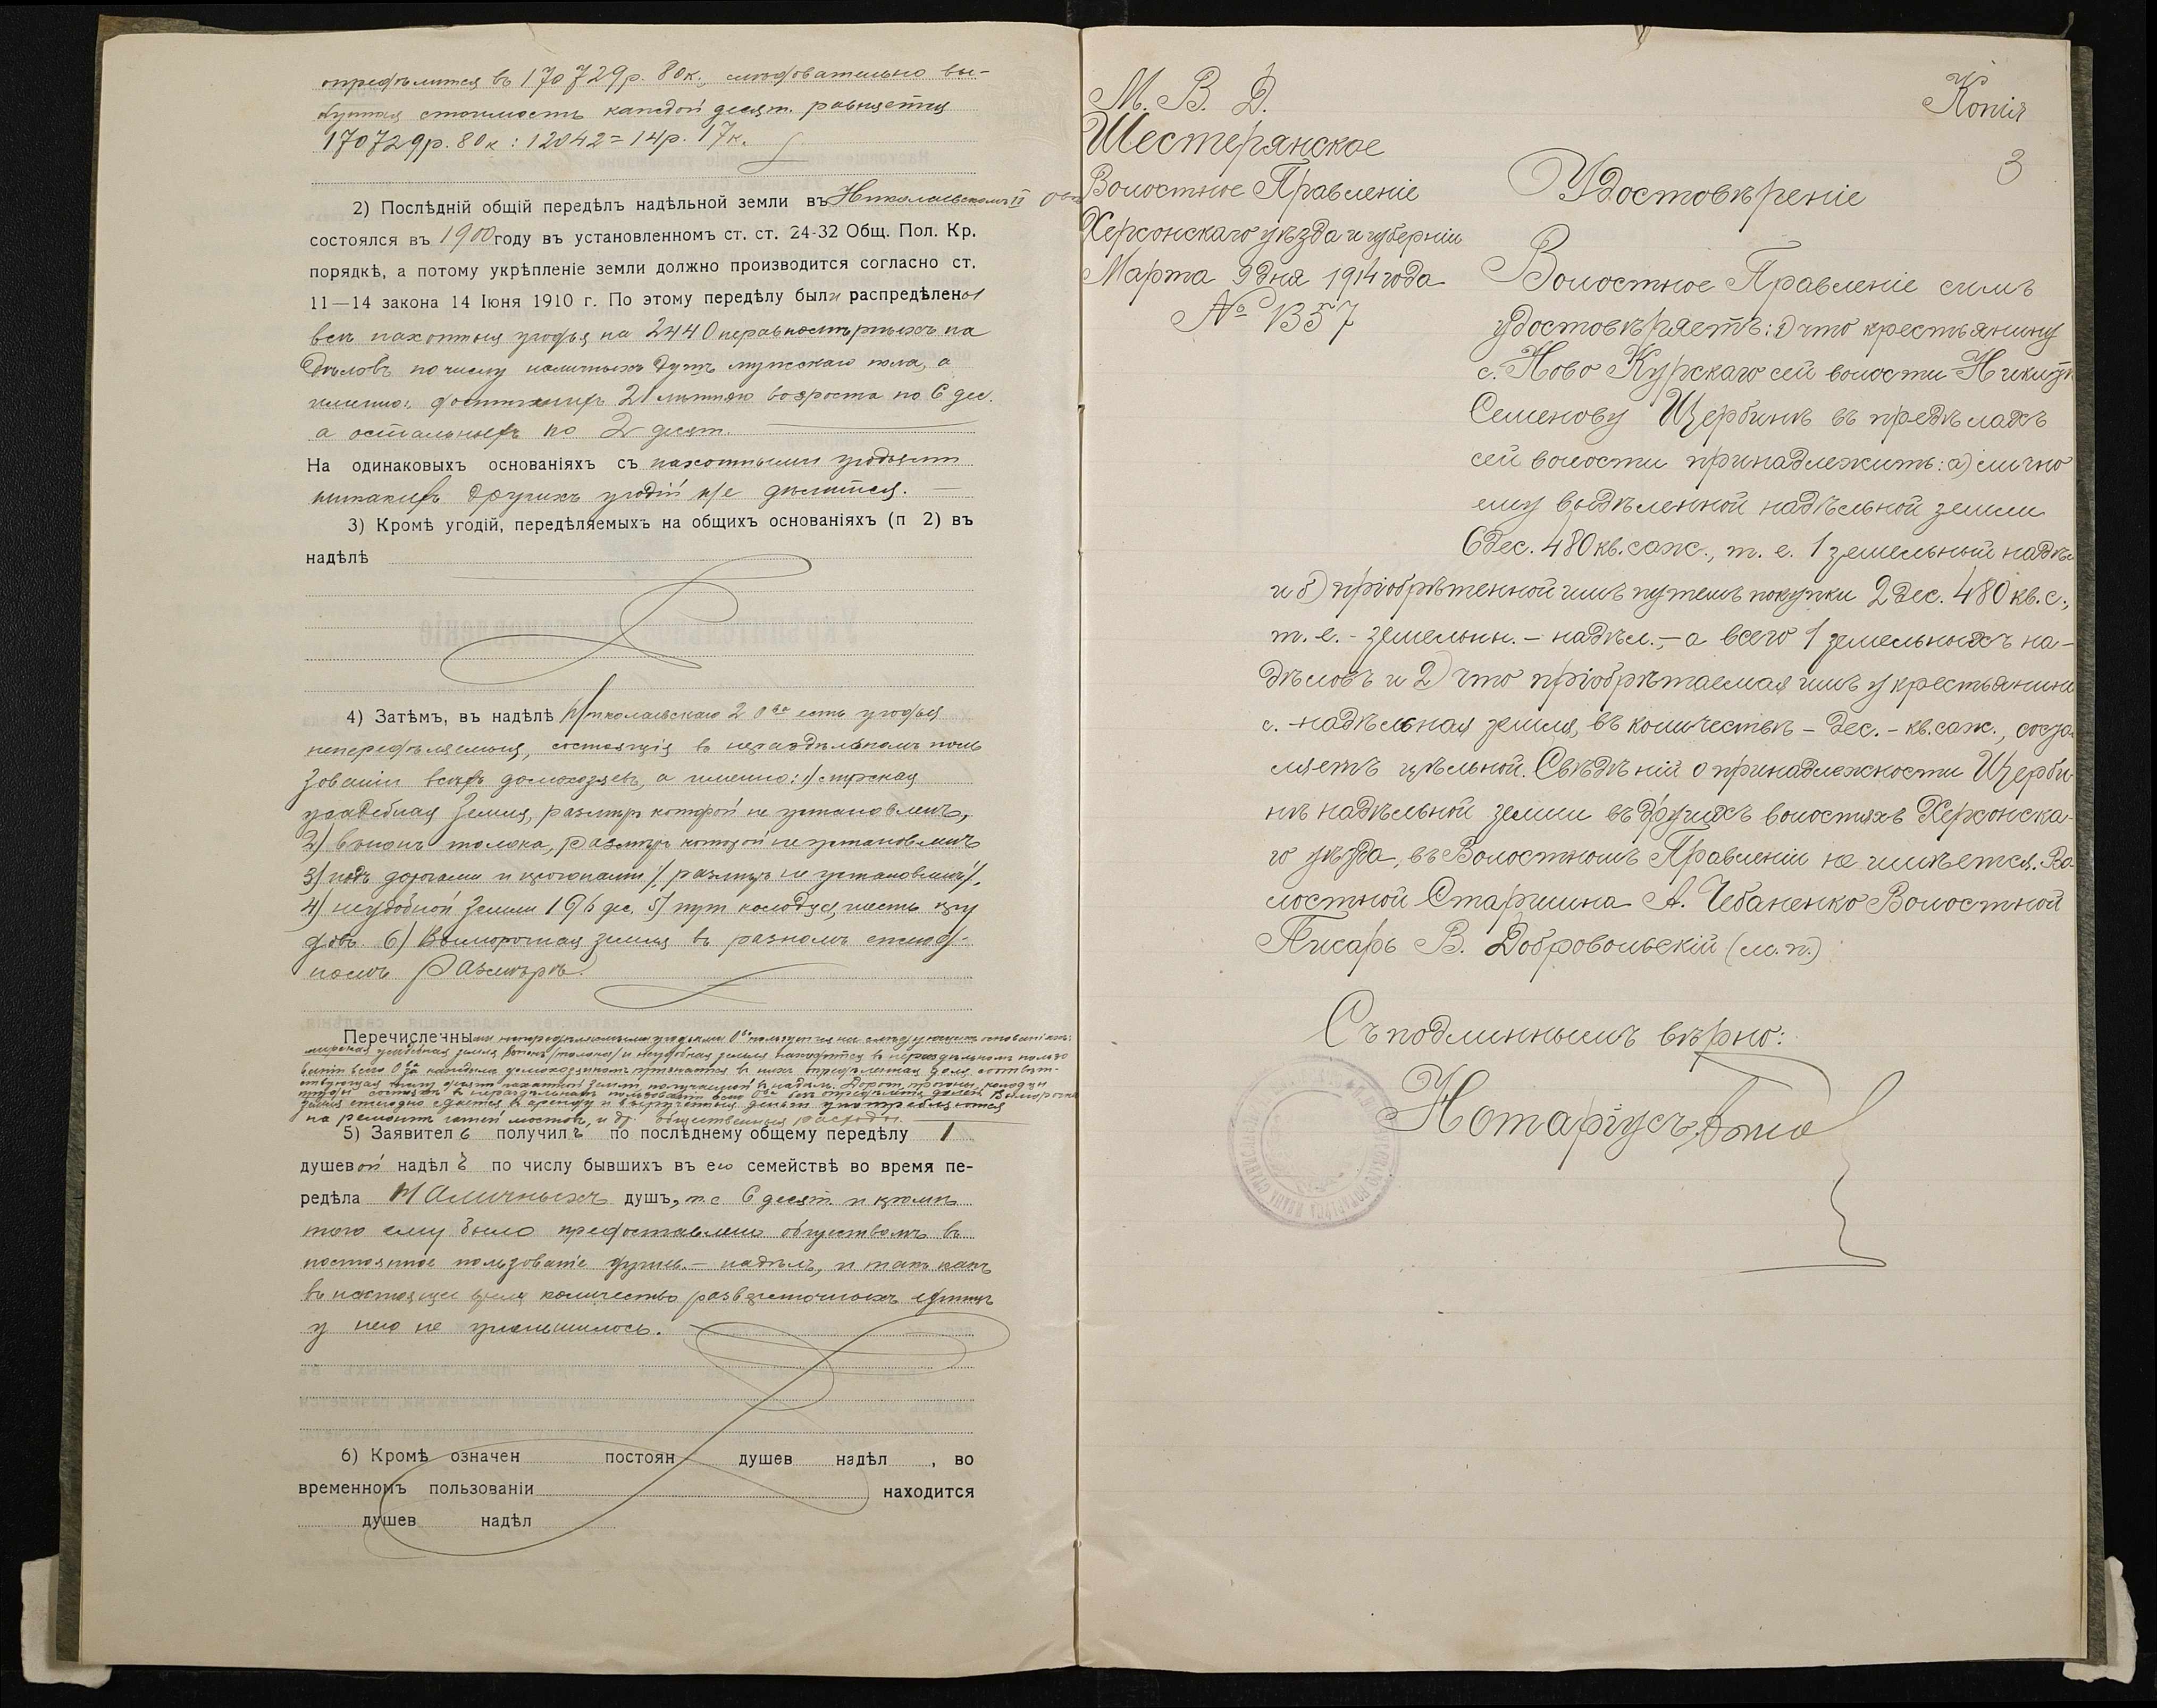 опредѣлится въ 170729р. 80к., слѣдовательно вы-
купная стоимость каждой десят. равняется
170729р. 80к : 12042 = 14р. 17к.
2) Послѣдній общій передѣлъ надѣльной земли въ Николаевскомъ II
состоялся въ 1900 году въ установленномъ ст. ст. 24-32 Общ. Пол. Кр.
порядкѣ, а потому укрѣпленіе земли должно производится согласно ст.
11—14 закона 14 Іюня 1910 г. По этому передѣлу были распредѣлены
всѣ пахотныя угодья на 2440 неравномѣрныхъ на
дѣловъ по числу наличныхъ душъ мужскаго пола, а
именно: достигшихъ 21 лѣтняго возроста по 6 дес.
а остальныхъ по 2 десят.
На одинаковыхъ основаніяхъ съ пахотными угодьями
никакихъ другихъ угодій не дѣлится. —
3) Кромѣ угодій, передѣляемыхъ на общихъ основаніяхъ (п 2) въ
надѣлѣ
4) Затѣмъ, въ надѣлѣ Николаевскаго 2 о-ва есть угодья
непередѣляемыя, состоящія въ нераздѣльномъ поль
зованіи всѣхъ домохозяевъ, а именно: 1) мірская
усадебная земля, размѣръ которой не установленъ,
2) выгонъ толока, размѣръ которой не установленъ
3) подъ дорогами и прогонами /размѣръ не установленъ/,
4) неудобной земли 196 дес. 5) пут колодцы, шесть пру
довъ 6) Выморочная земля въ разномъ ежегод-
номъ размѣрѣ.
Перечисленными непередѣляемыми угодьями о-во пользуется на слѣдующихъ основаніяхъ:
мірская усадебная земля, выгонъ /толока/ и неудобная земля находятся въ нераздѣльномъ пользо
ваніи всего о-ва каждымъ домохозяиномъ въ нихъ опредѣленная доля соотвѣт-
ствующая числу десят. пахатной земли, полученной въ надѣлъ. Дороги, прогоны, колодцы
пруды состоятъ въ нераздѣльномъ пользованіи всего о-ва безъ опредѣленія долей. Выморочная
земля ежегодно сдается въ аренду и вырученныя деньги употребляются
на ремонтъ гатей мостовъ, и др. общественныя расходы.
5) Заявитель получилъ по послѣднему общему передѣлу 1
душевой надѣлъ по числу бывшихъ въ его семействѣ во время пе-
редѣла наличныхъ душъ, т. е 6 десят. и кромѣ
того ему было предоставлено обществомъ въ
постоянное пользованіе душев. — надѣлъ, и такъ какъ
въ настоящее время количество разверсточныхъ единицъ
у него не уменьшилось.
6) Кромѣ означен постоян душев надѣл , во
временномъ пользованіи находится
душев надѣл
Копія
3
М. В. Д.
Шестерянское
Волостное Правленіе
Херсонскаго уѣзда и губерніи
Марта 9 дня 1914 года
№ 1357
Удостовѣреніе
Волостное Правленіе симъ
удостовѣряетъ: 1) что крестьянину
с. Ново Курскаго сей волости
Семенову Щербинѣ въ предѣлахъ
сей волости принадлежитъ: а) лично
ему выдѣленной надѣльной земли
6 дес. 480 кв. саж., т. е. 1 земельный надѣл
и б) пріобрѣтенной имъ путемъ покупки 2 дес. 480 кв. с.,
т. е. - земельн. - надѣл. - а всего 1 земельныхъ на-
дѣловъ и 2) что пріобрѣтаемая имъ у крестьянина
с. - надѣльная земля, въ количествѣ - дес. - кв. саж., состав
ляетъ цѣльной. Свѣдѣній о принадлежности Щерби-
нѣ надѣльной земли въ другихъ волостяхъ Херсонска-
го уѣзда, въ Волостномъ Правленіи не имѣется. Во-
лостной Старшина А. Чебаненко Волостной
Писарь В. Добровольскій (м. п.)
Съ подлиннымъ вѣрно:
Нотаріусъ